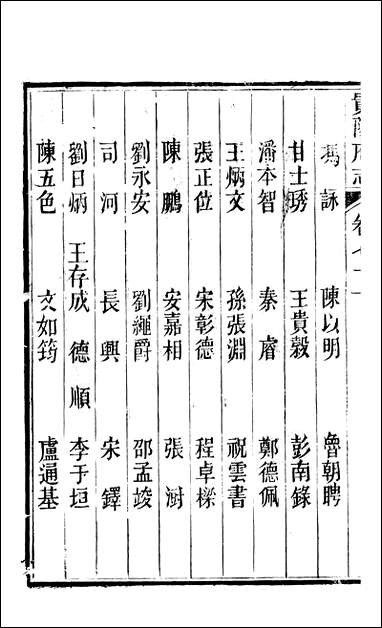 貴陽府志 卷七十二
馮詠 陳以明 魯朝聘
甘士琇 王貴穀 彭南錄
潘本智 秦睿 鄭德佩
王炳文 孫張淵 祝雲書
張正位 宋彰德 程卓樑
陳鵬 安嘉相 張澍
劉永安 劉繩爵 邵孟竣
司河 長興 宋鐸
劉日炳 王存成 德順 李于垣
陳五色 文如筠 盧通基